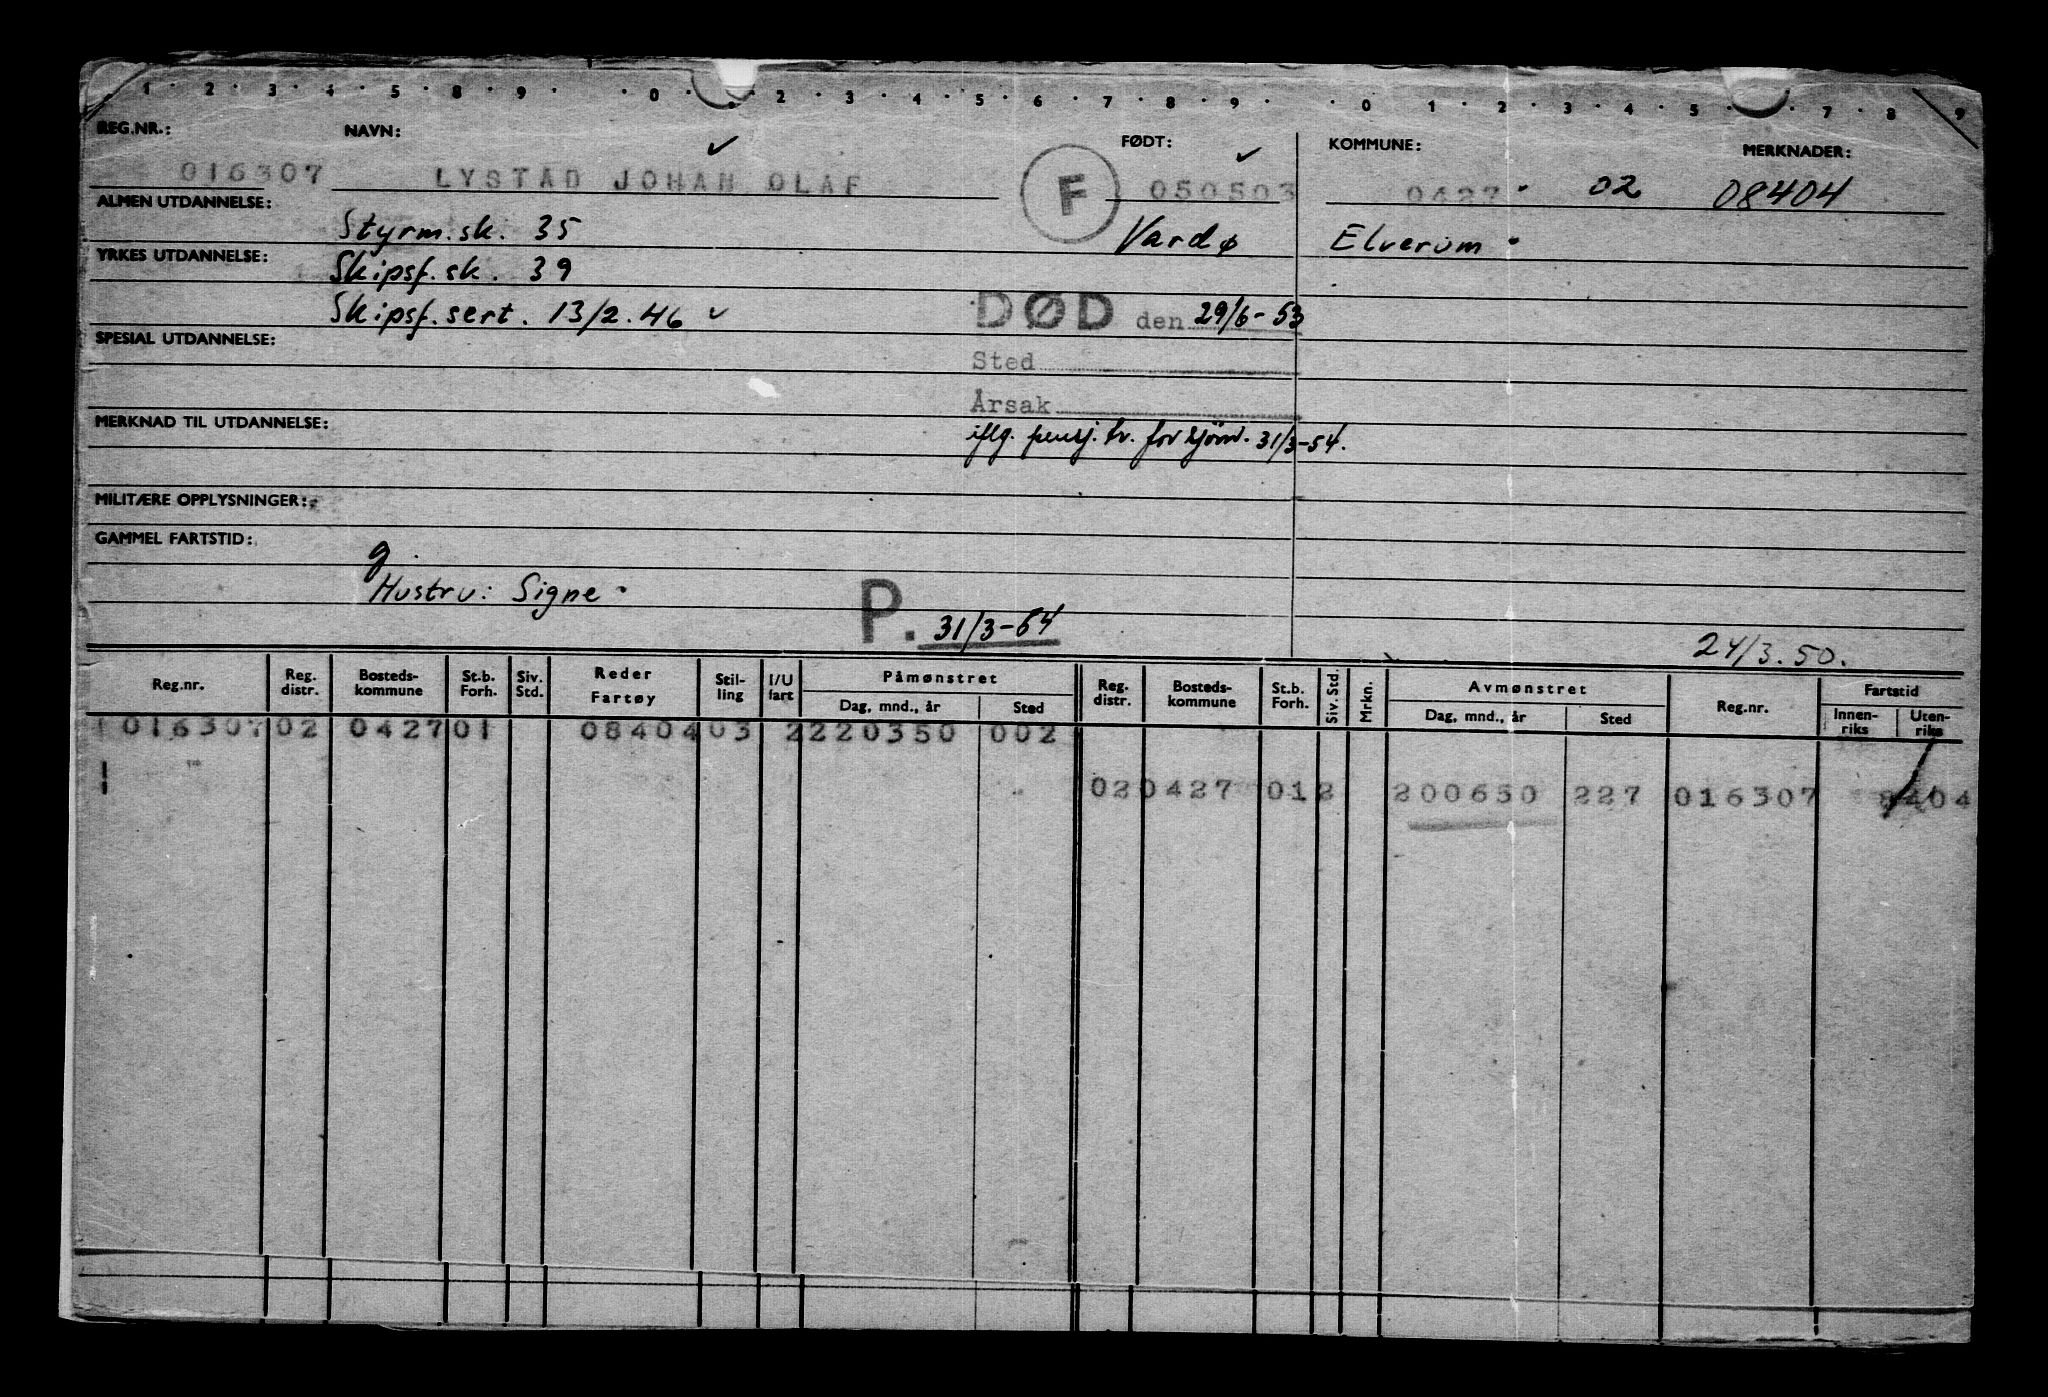 1 · 2 · 3 · 4 · 5 · 8 · 9 · · 0 · · 2 · 3 · 4 · 5 · 6 · 7 · 8 · 9 · · 0 · 1 · 2 · 3 · 4 · 5 · · 7 · 8 · 9
REG.NR.: NAVN: ✓ FØDT: ✓ KOMMUNE: MERKNADER:
016307 LYSTAD JOHAN OLAF F 050503 0427 · 02 08404
ALMEN UTDANNELSE: Styrm.sk. 35 Vardø Elverum ·
YRKES UTDANNELSE: Skipsf.sk. 39
Skipsf.sert. 13/2.46 ✓ DØD den 29/6-53
SPESIAL UTDANNELSE: Sted
Årsak
MERKNAD TIL UTDANNELSE: iflg. pensj.tr. for sjöm. 31/3-54.
MILITÆRE OPPLYSNINGER:
GAMMEL FARTSTID:
g.
Hustru: Signe · P. 31/3-54
24/3.50.
Reg.nr. Reg. distr. Bosteds-kommune St.b. Forh. Siv. Std. Reder Fartøy Stil-ling I/U fart Påmønstret Dag, mnd., år Sted Reg. distr. Bosteds-kommune St.b. Forh. Siv. Std. Mrkn. Avmønstret Dag, mnd., år Sted Reg.nr. Fartstid Innen-riks Uten-riks
1 016307 02 0427 01 08404 03 2 220350 002
02 0427 01 2 200650 227 016307 8404